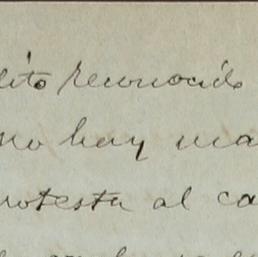 dito reconocido
no hay ma
rotesta al ca